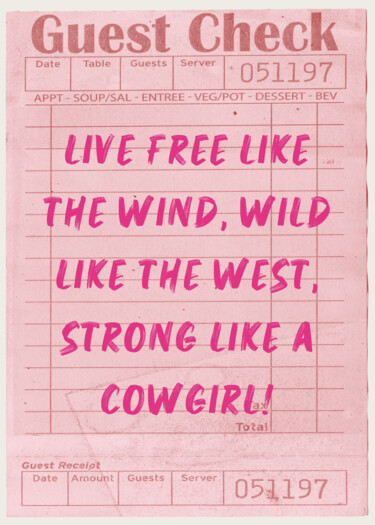 Guest Check
Date Table Guests Server 051197
APPT - SOUP/SAL - ENTREE - VEG/POT - DESSERT - BEV
LIVE FREE LIKE
THE WIND, WILD
LIKE THE WEST,
STRONG LIKE A
COWGIRL!
Tax
Total
Guest Receipt
Date Amount Guests Server 051197